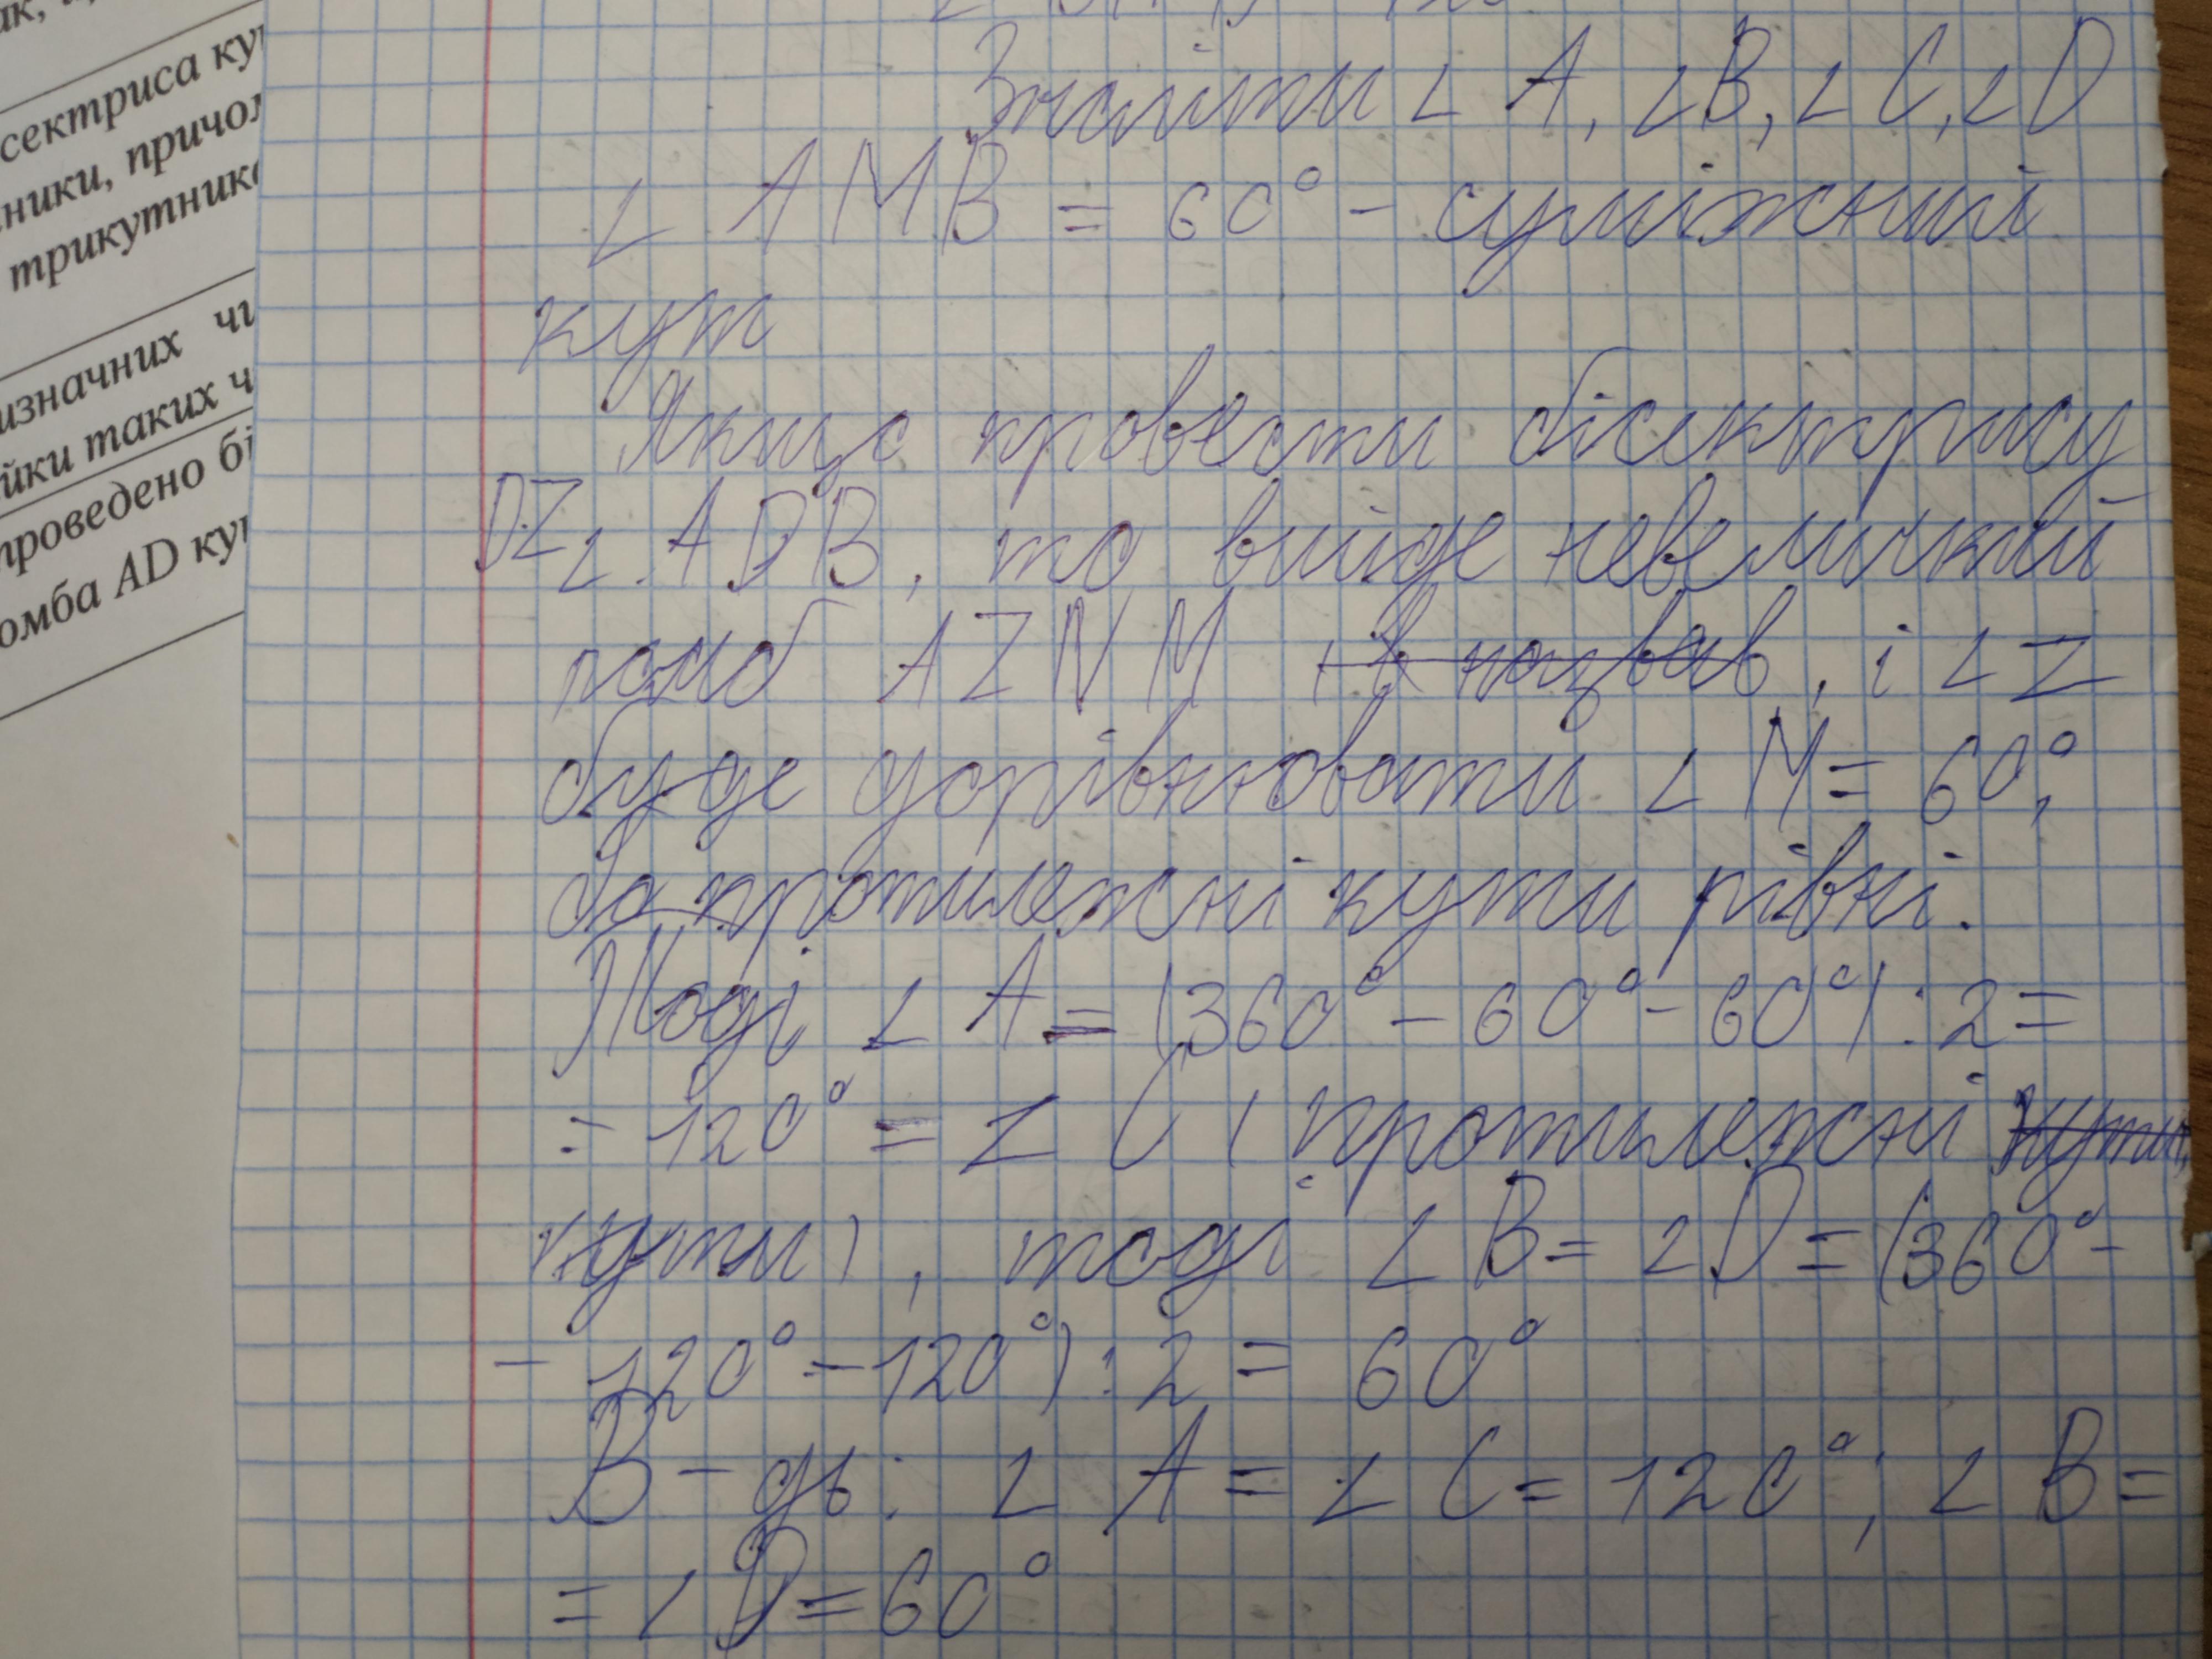 сектриса ку
ники, причо
трикутник
изначних чи
йки таких ч
проведено бі
омба AD ку
Знайти ∠ A, ∠B, ∠ C, ∠D
∠ AMB = 60° - суміжний
кут
Якщо провести бісектрису
DZ ∠ ADB, то вийде невеличкий
ромб AZNM, і ∠ Z
буде дорівнювати ∠ M = 60°,
бо протилежні кути рівні.
Тоді ∠ A = (360° - 60° - 60°) : 2 =
= 120° = ∠ C ( протилежні кути
кути) , тоді ∠ B = ∠D = (360° -
- 120° - 120°) : 2 = 60°
В-дь: ∠ A = ∠ C = 120°; ∠ B =
= ∠ D = 60°